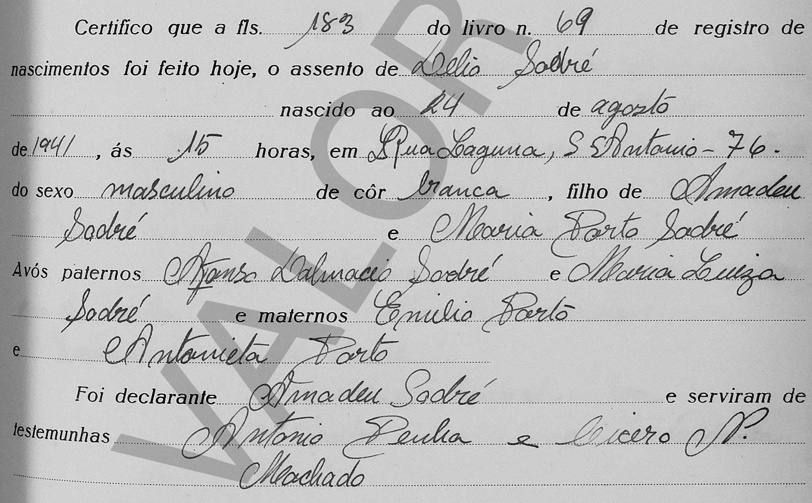 Certifico que a fls. 183 do livro n. 69 de registro de
nascimentos foi feito hoje, o assento de Delio Sodré
nascido ao 24 de agosto
de 1941, ás 15 horas, em Rua Laguna, S Antonio - 76.
do sexo masculino de côr branca, filho de Amadeu
Sodré e Maria Porto Sodré
Avós paternos Afonso Dalmacio Sodré e Maria Luiza
Sodré e maternos Emilio Porto
e Antonieta Porto
Foi declarante Amadeu Sodré e serviram de
testemunhas Antonio Penha e Cicero N.
Machado
VALOR